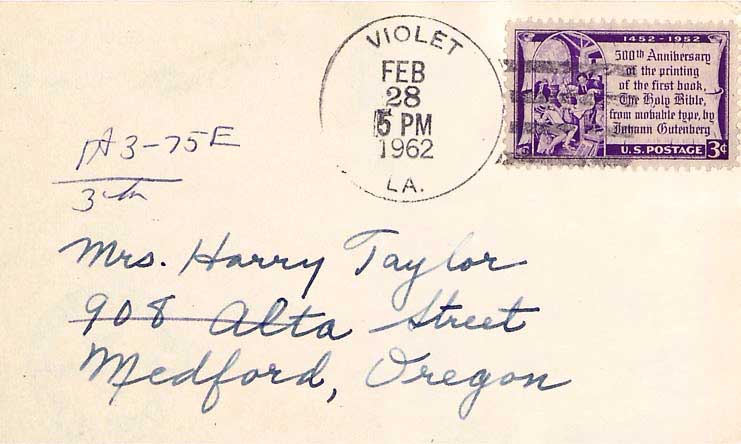 VIOLET
FEB
28
5 PM
1962
LA.
1452-1952
500th Anniversary
of the printing
of the first book,
The Holy Bible,
from movable type, by
Johann Gutenberg
U.S. POSTAGE 3¢
A3-75E
Mrs. Harry Taylor
908 Alta Street
Medford, Oregon